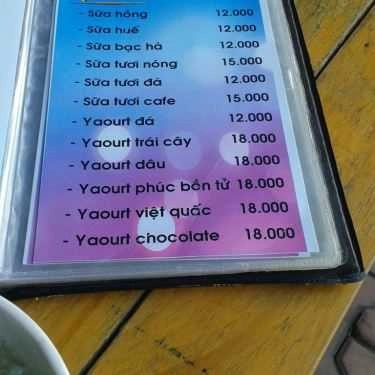 - Sữa hồng 12.000
- Sữa huế 12.000
- Sữa bạc hà 12.000
- Sữa tươi nóng 15.000
- Sữa tươi đá 12.000
- Sữa tươi cafe 15.000
- Yaourt đá 12.000
- Yaourt trái cây 18.000
- Yaourt dâu 18.000
- Yaourt phúc bồn tử 18.000
- Yaourt việt quấc 18.000
- Yaourt chocolate 18.000